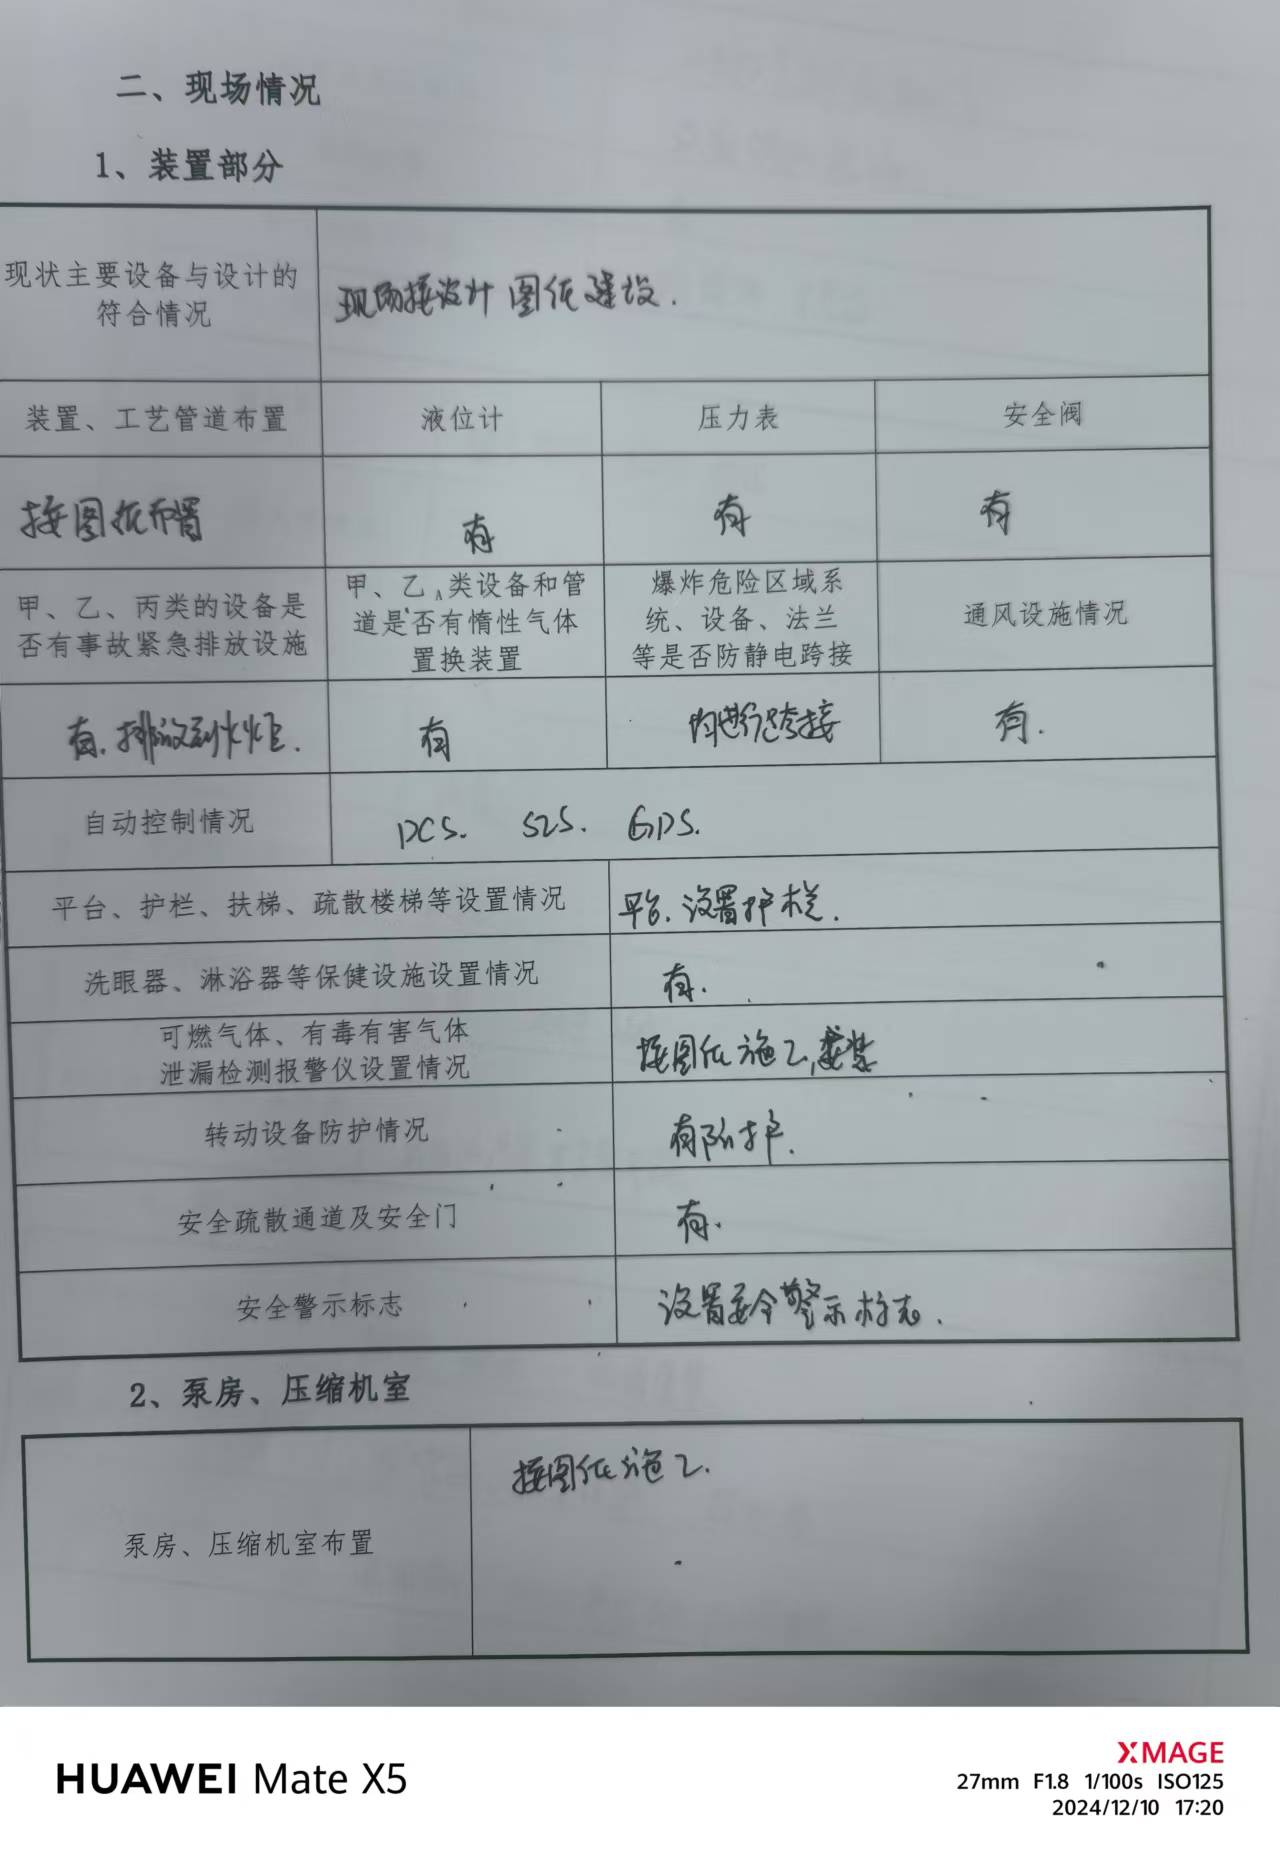 二、现场情况
1、装置部分
现状主要设备与设计的
符合情况
现场按设计图纸建设.
装置、工艺管道布置
液位计
压力表
安全阀
按图纸布置
有
有
有
甲、乙、丙类的设备是
否有事故紧急排放设施
甲、乙A类设备和管
道是否有惰性气体
置换装置
爆炸危险区域系
统、设备、法兰
等是否防静电跨接
通风设施情况
有.排放到火炬.
有
均进行跨接
有.
自动控制情况
DCS. SIS. GDS.
平台、护栏、扶梯、疏散楼梯等设置情况
平台.设置护栏.
洗眼器、淋浴器等保健设施设置情况
有.
可燃气体、有毒有害气体
泄漏检测报警仪设置情况
按图纸施工,安装
转动设备防护情况
有防护.
安全疏散通道及安全门
有.
安全警示标志
设置安全警示标志.
2、泵房、压缩机室
泵房、压缩机室布置
按图纸施工.
HUAWEI Mate X5
XMAGE
27mm F1.8 1/100s ISO125
2024/12/10 17:20